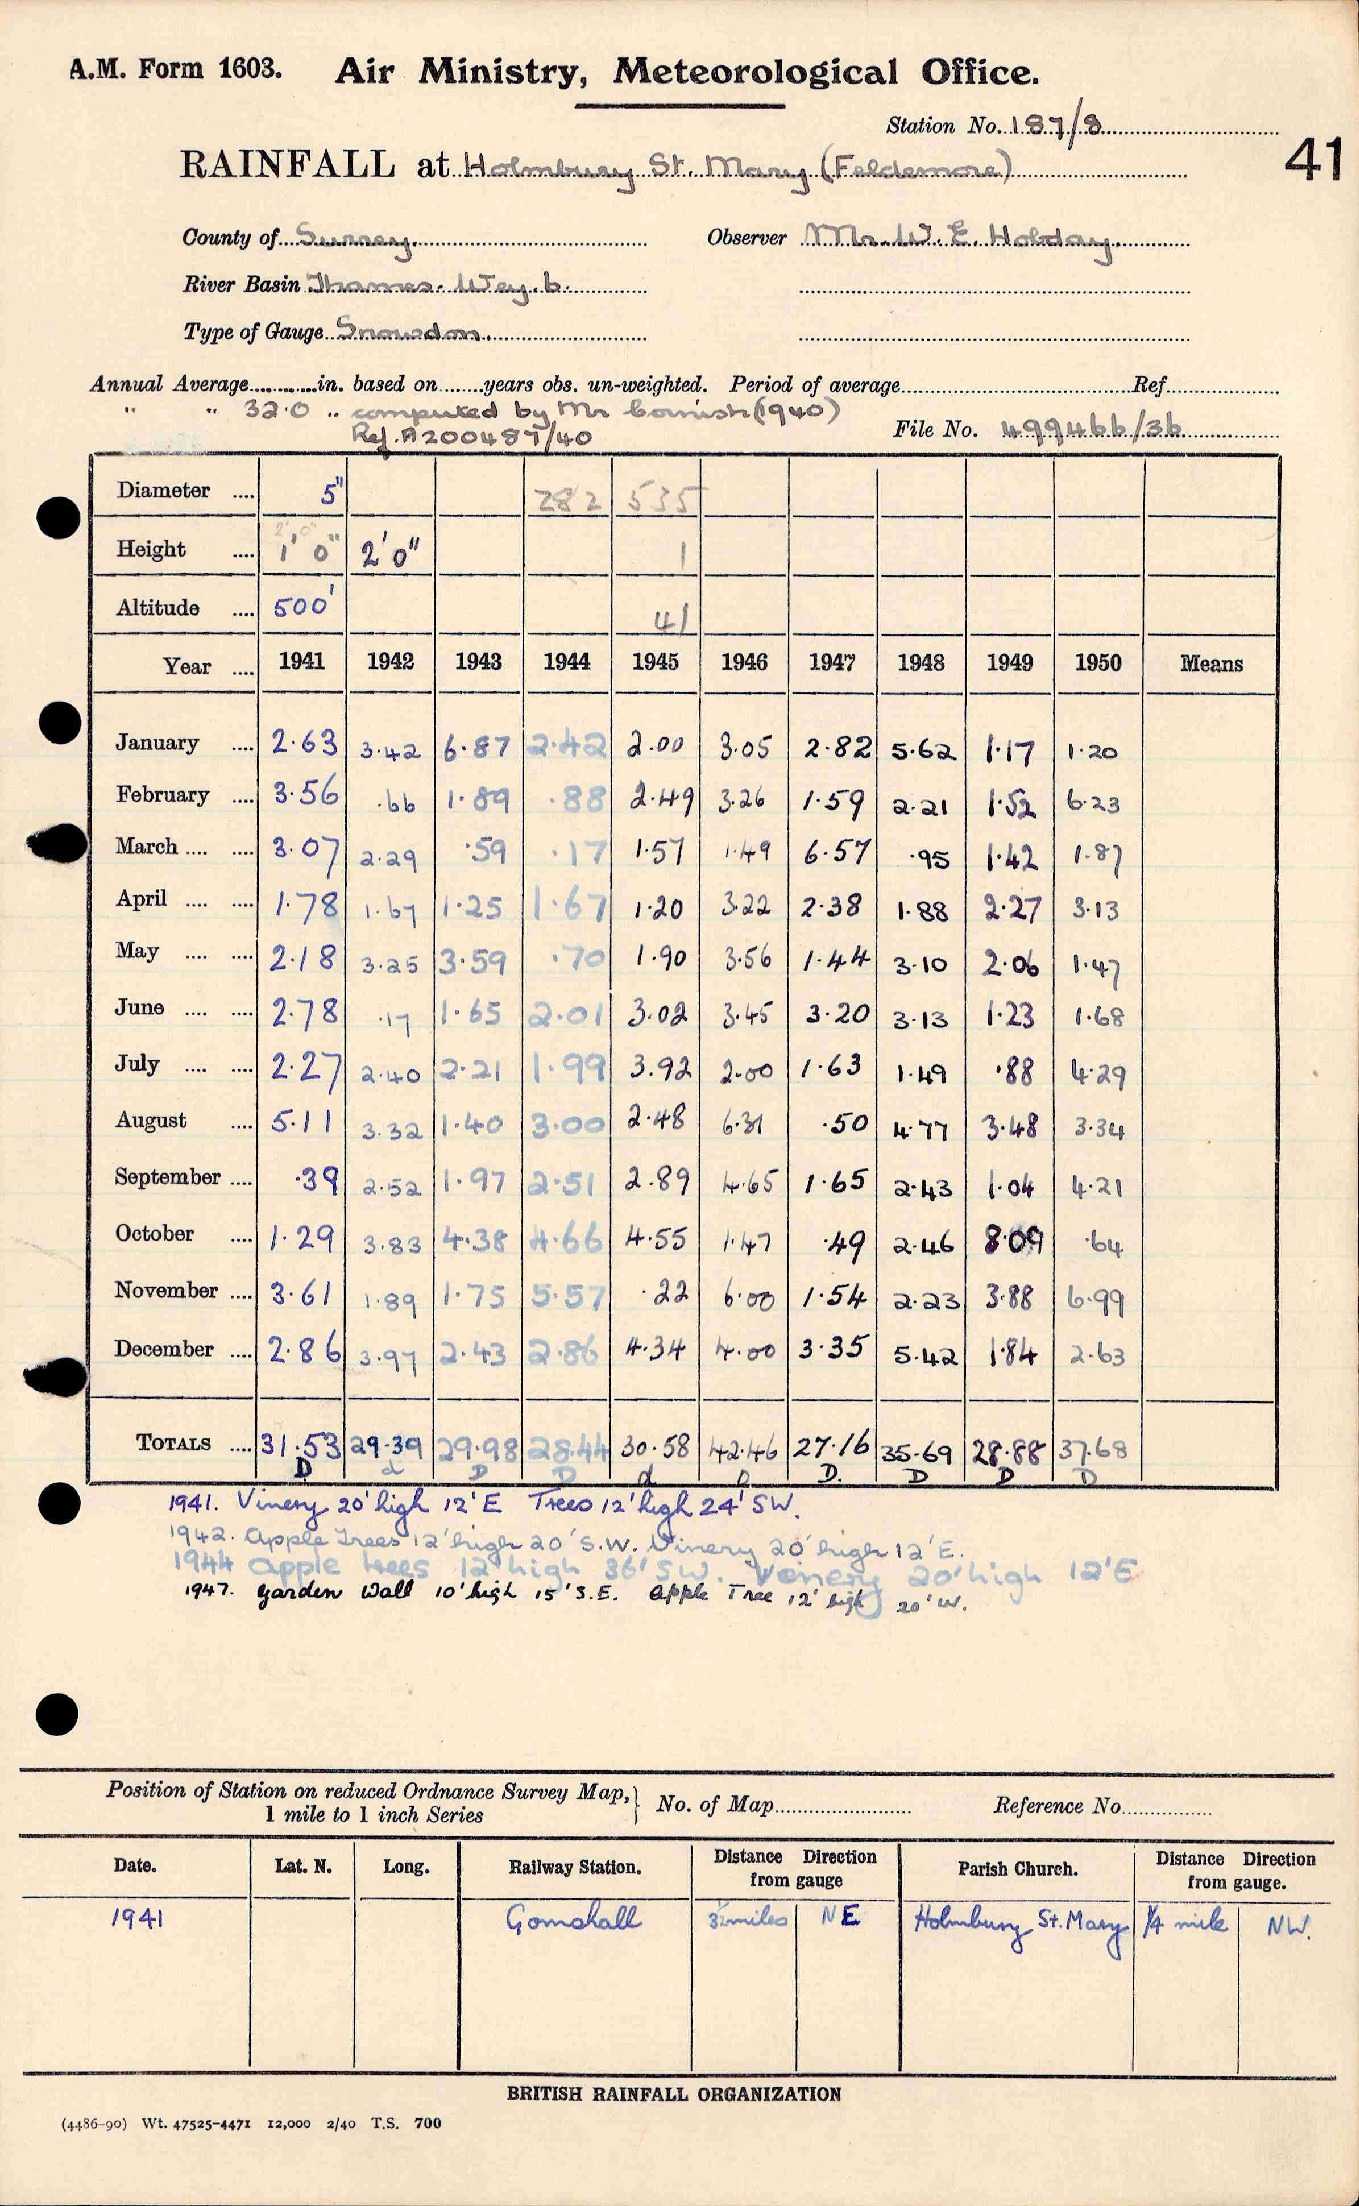 A.M. Form 1603. Air Ministry, Meteorological Office.
Station No. 187/8
41
RAINFALL at Holmbury St. Mary (Feldemore)
County of Surrey. Observer Mr. W. E. Hobday.
River Basin Thames. Wey. b.
Type of Gauge Snowdon.
Annual Average............in. based on.......years obs. un-weighted. Period of average............Ref............
" " 32.0 .. computed by Mr Cornish (1940)
Ref. A200487/40 File No. 499466/36
Diameter .... 5" 282 535
Height .... 1' 0" 2' 0" 1
Altitude .... 500' 41
Year .... 1941 1942 1943 1944 1945 1946 1947 1948 1949 1950 Means
January .... 2.63 3.42 6.87 2.42 2.00 3.05 2.82 5.62 1.17 1.20
February .... 3.56 .66 1.89 .88 2.49 3.26 1.59 2.21 1.52 6.23
March .... .... 3.07 2.29 .59 .17 1.57 1.49 6.57 .95 1.42 1.87
April .... .... 1.78 1.67 1.25 1.67 1.20 3.22 2.38 1.88 2.27 3.13
May .... .... 2.18 3.25 3.59 .70 1.90 3.56 1.44 3.10 2.06 1.47
June .... .... 2.78 .17 1.65 2.01 3.02 3.45 3.20 3.13 1.23 1.68
July .... .... 2.27 2.40 2.21 1.99 3.92 2.00 1.63 1.49 .88 4.29
August .... 5.11 3.32 1.40 3.00 2.48 6.31 .50 4.77 3.48 3.34
September .... .39 2.52 1.97 2.51 2.89 4.65 1.65 2.43 1.04 4.21
October .... 1.29 3.83 4.38 4.66 4.55 1.47 .49 2.46 8.09 .64
November .... 3.61 1.89 1.75 5.57 .22 6.00 1.54 2.23 3.88 6.99
December .... 2.86 3.97 2.43 2.86 4.34 4.00 3.35 5.42 1.84 2.63
TOTALS .... 31.53 29.39 29.98 28.44 30.58 42.46 27.16 35.69 28.88 37.68
D d D D d D D. D D D
1941. Vinery 20' high 12' E Trees 12' high 24' SW.
1942. Apple Trees 12' high 20' S.W. Vinery 20' high 12' E.
1944 apple trees 12' high 36' SW. Vinery 20' high 12' E
1947. Garden Wall 10' high 15' S.E. Apple Tree 12' high 20' W.
Position of Station on reduced Ordnance Survey Map,} No. of Map............ Reference No............
1 mile to 1 inch Series
Date. Lat. N. Long. Railway Station. Distance Direction from gauge Parish Church. Distance Direction from gauge.
1941 Gomshall 3½ miles NE Holmbury St. Mary ¼ mile NW.
BRITISH RAINFALL ORGANIZATION
(4486-90) Wt. 47525-4471 12,000 2/40 T.S. 700